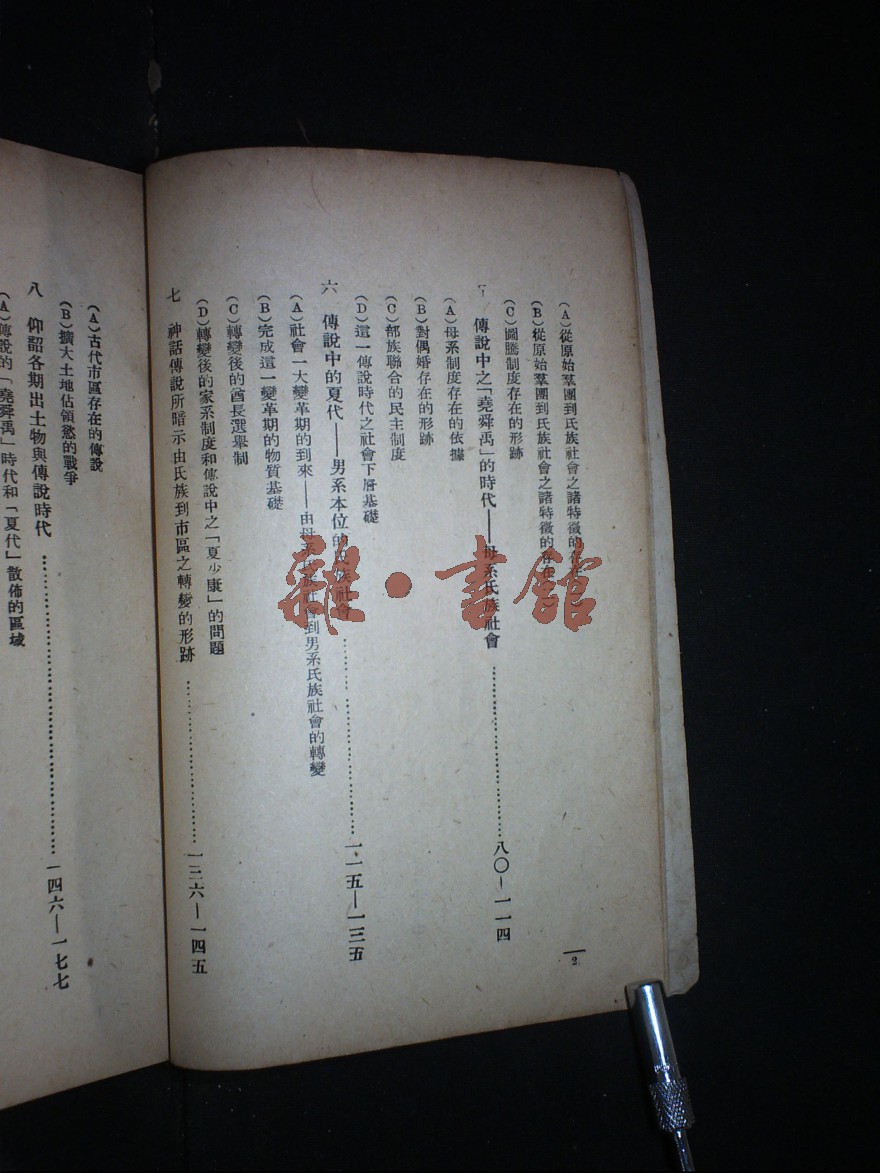 (A)從原始羣團到氏族社會之諸特徵的存在
(B)從原始羣團到氏族社會之諸特徵的存在
(C)圖騰制度存在的形跡
傳說中之「堯舜禹」的時代——母系氏族社會…………八〇—一一四
(A)母系制度存在的依據
(B)對偶婚存在的形跡
(C)部族聯合的民主制度
(D)這一傳說時代之社會下層基礎
六 傳說中的夏代——男系本位的氏族社會…………一一五—一三五
(A)社會一大變革期的到來——由母系氏族社會到男系氏族社會的轉變
(B)完成這一變革期的物質基礎
(C)轉變後的酋長選舉制
(D)轉變後的家系制度和傳說中之「夏少康」的問題
七 神話傳說所暗示由氏族到市區之轉變的形跡…………一三六—一四五
2
(A)古代市區存在的傳說
(B)擴大土地佔領慾的戰爭
八 仰韶各期出土物與傳說時代…………一四六—一七七
(A)傳說的「堯舜禹」時代和「夏代」散佈的區域
雜·書館